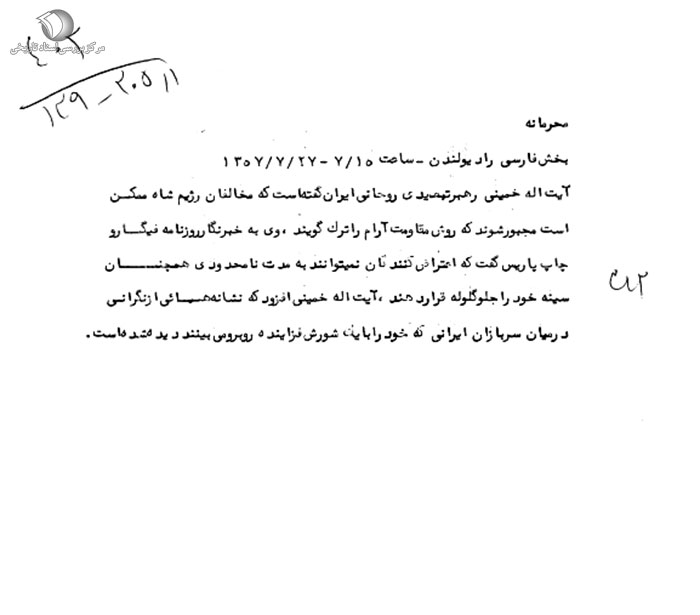 مرکز بررسی اسناد تاریخی
محرمانه
بخش فارسی رادیولندن - ساعت ۷/۱۵ - ۱۳۵۷/۷/۲۷
آیت اله خمینی رهبر تبعیدی روحانی ایران گفته‌است که مخالفان رژیم شاه ممکن
است مجبورشوند که روش مقاومت آرام را ترك گویند ، وی به خبرنگار روزنامه فیگارو
چاپ پاریس گفت که اعتراض کنندگان نمیتوانند به مدت نامحدودی همچنان
سینه خود را جلو گلوله قرار دهند ، آیت اله خمینی افزود که نشانه‌هائی از نگرانی
درمیان سربازان ایرانی که خود را با یك شورش فزاینده روبرو می بینند دیده شده‌است .